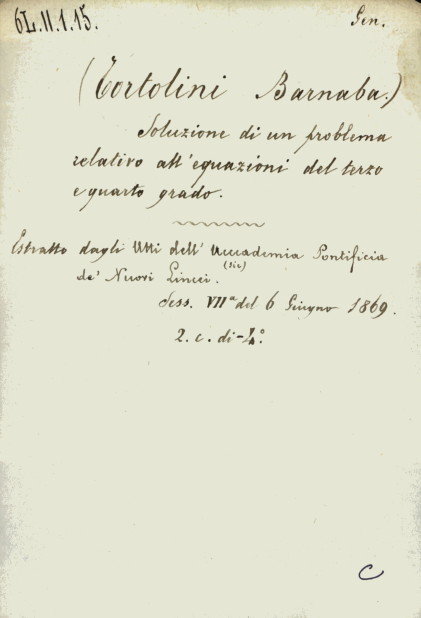 6L.II.1.15.
Gen.
(Tortolini Barnaba.)
Soluzione di un problema
relativo all'equazioni del terzo
e quarto grado.
Estratto dagli Atti dell'Accademia Pontificia
(sic)
de' Nuovi Lincei.
Sess. VIIª del 6 Giugno 1869.
2. c. di-4.º
C